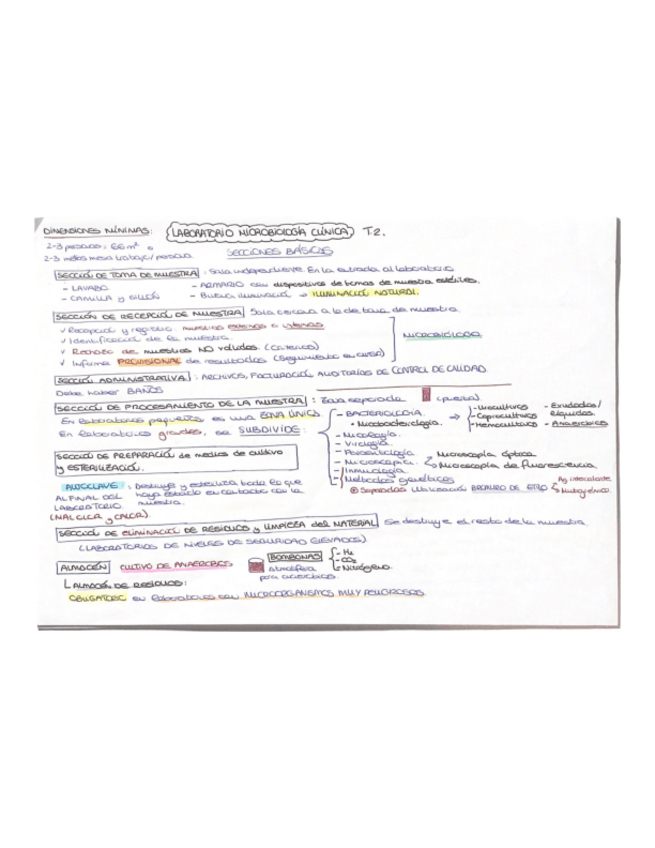 DIMENSIONES MÍNIMAS: LABORATORIO MICROBIOLOGÍA CLÍNICA T2.
2-3 personas: 66 m² o
2-3 metros mesa trabajo/persona.
SECCIONES BÁSICAS
SECCIÓN DE TOMA DE MUESTRA: Sala independiente. En la entrada al laboratorio.
- LAVABO
- CAMILLA y SILLÓN
- ARMARIO con dispositivos de tomas de muestra estériles.
- Buena iluminación → ILUMINACIÓN NATURAL.
SECCIÓN DE RECEPCIÓN DE MUESTRA: Sala cercana a la de toma de muestra.
✓ Recepción y registro: muestras externas o internas
✓ Identificación de la muestra.
✓ Rechazo de muestras NO válidas. (Criterios)
✓ Informe PROVISIONAL de resultados (Seguimiento en curso)
MICROBIÓLOGO
SECCIÓN ADMINISTRATIVA: ARCHIVOS, FACTURACIÓN, AUDITORÍAS DE CONTROL DE CALIDAD.
Debe haber BAÑOS
SECCIÓN DE PROCESAMIENTO DE LA MUESTRA: Zona separada
En laboratorios pequeños es una ZONA ÚNICA.
En laboratorios grandes, se SUBDIVIDE:
- BACTERIOLOGÍA.
• Micobacteriología.
→ - Urocultivos
- Coprocultivos
- Hemocultivos
- Exudados/
líquidos.
- Anaerobios
- Micología.
- Virología.
- Parasitología
- Microscopía.
Microscopía óptica
Microscopía de fluorescencia.
- Inmunología
- Métodos genéticos
Separados Utilización BROMURO DE ETIO
Ag. intercalante
Mutagénico
SECCIÓN DE PREPARACIÓN de medios de cultivo
y ESTERILIZACIÓN.
AUTOCLAVE: Destruye y esteriliza todo lo que
AL FINAL DEL haya estado en contacto con la
LABORATORIO. muestra.
(MAL OLOR y CALOR).
SECCIÓN DE ELIMINACIÓN DE RESIDUOS y LIMPIEZA del MATERIAL Se destruye el resto de la muestra
(LABORATORIOS DE NIVELES DE SEGURIDAD ELEVADOS).
ALMACÉN CULTIVO DE ANAEROBIOS
BOMBONAS
- H₂
- CO₂
- Nitrógeno.
atmósfera
para anaerobios.
ALMACÉN DE RESIDUOS:
OBLIGATORIO en laboratorios con MICROORGANISMOS MUY PELIGROSOS